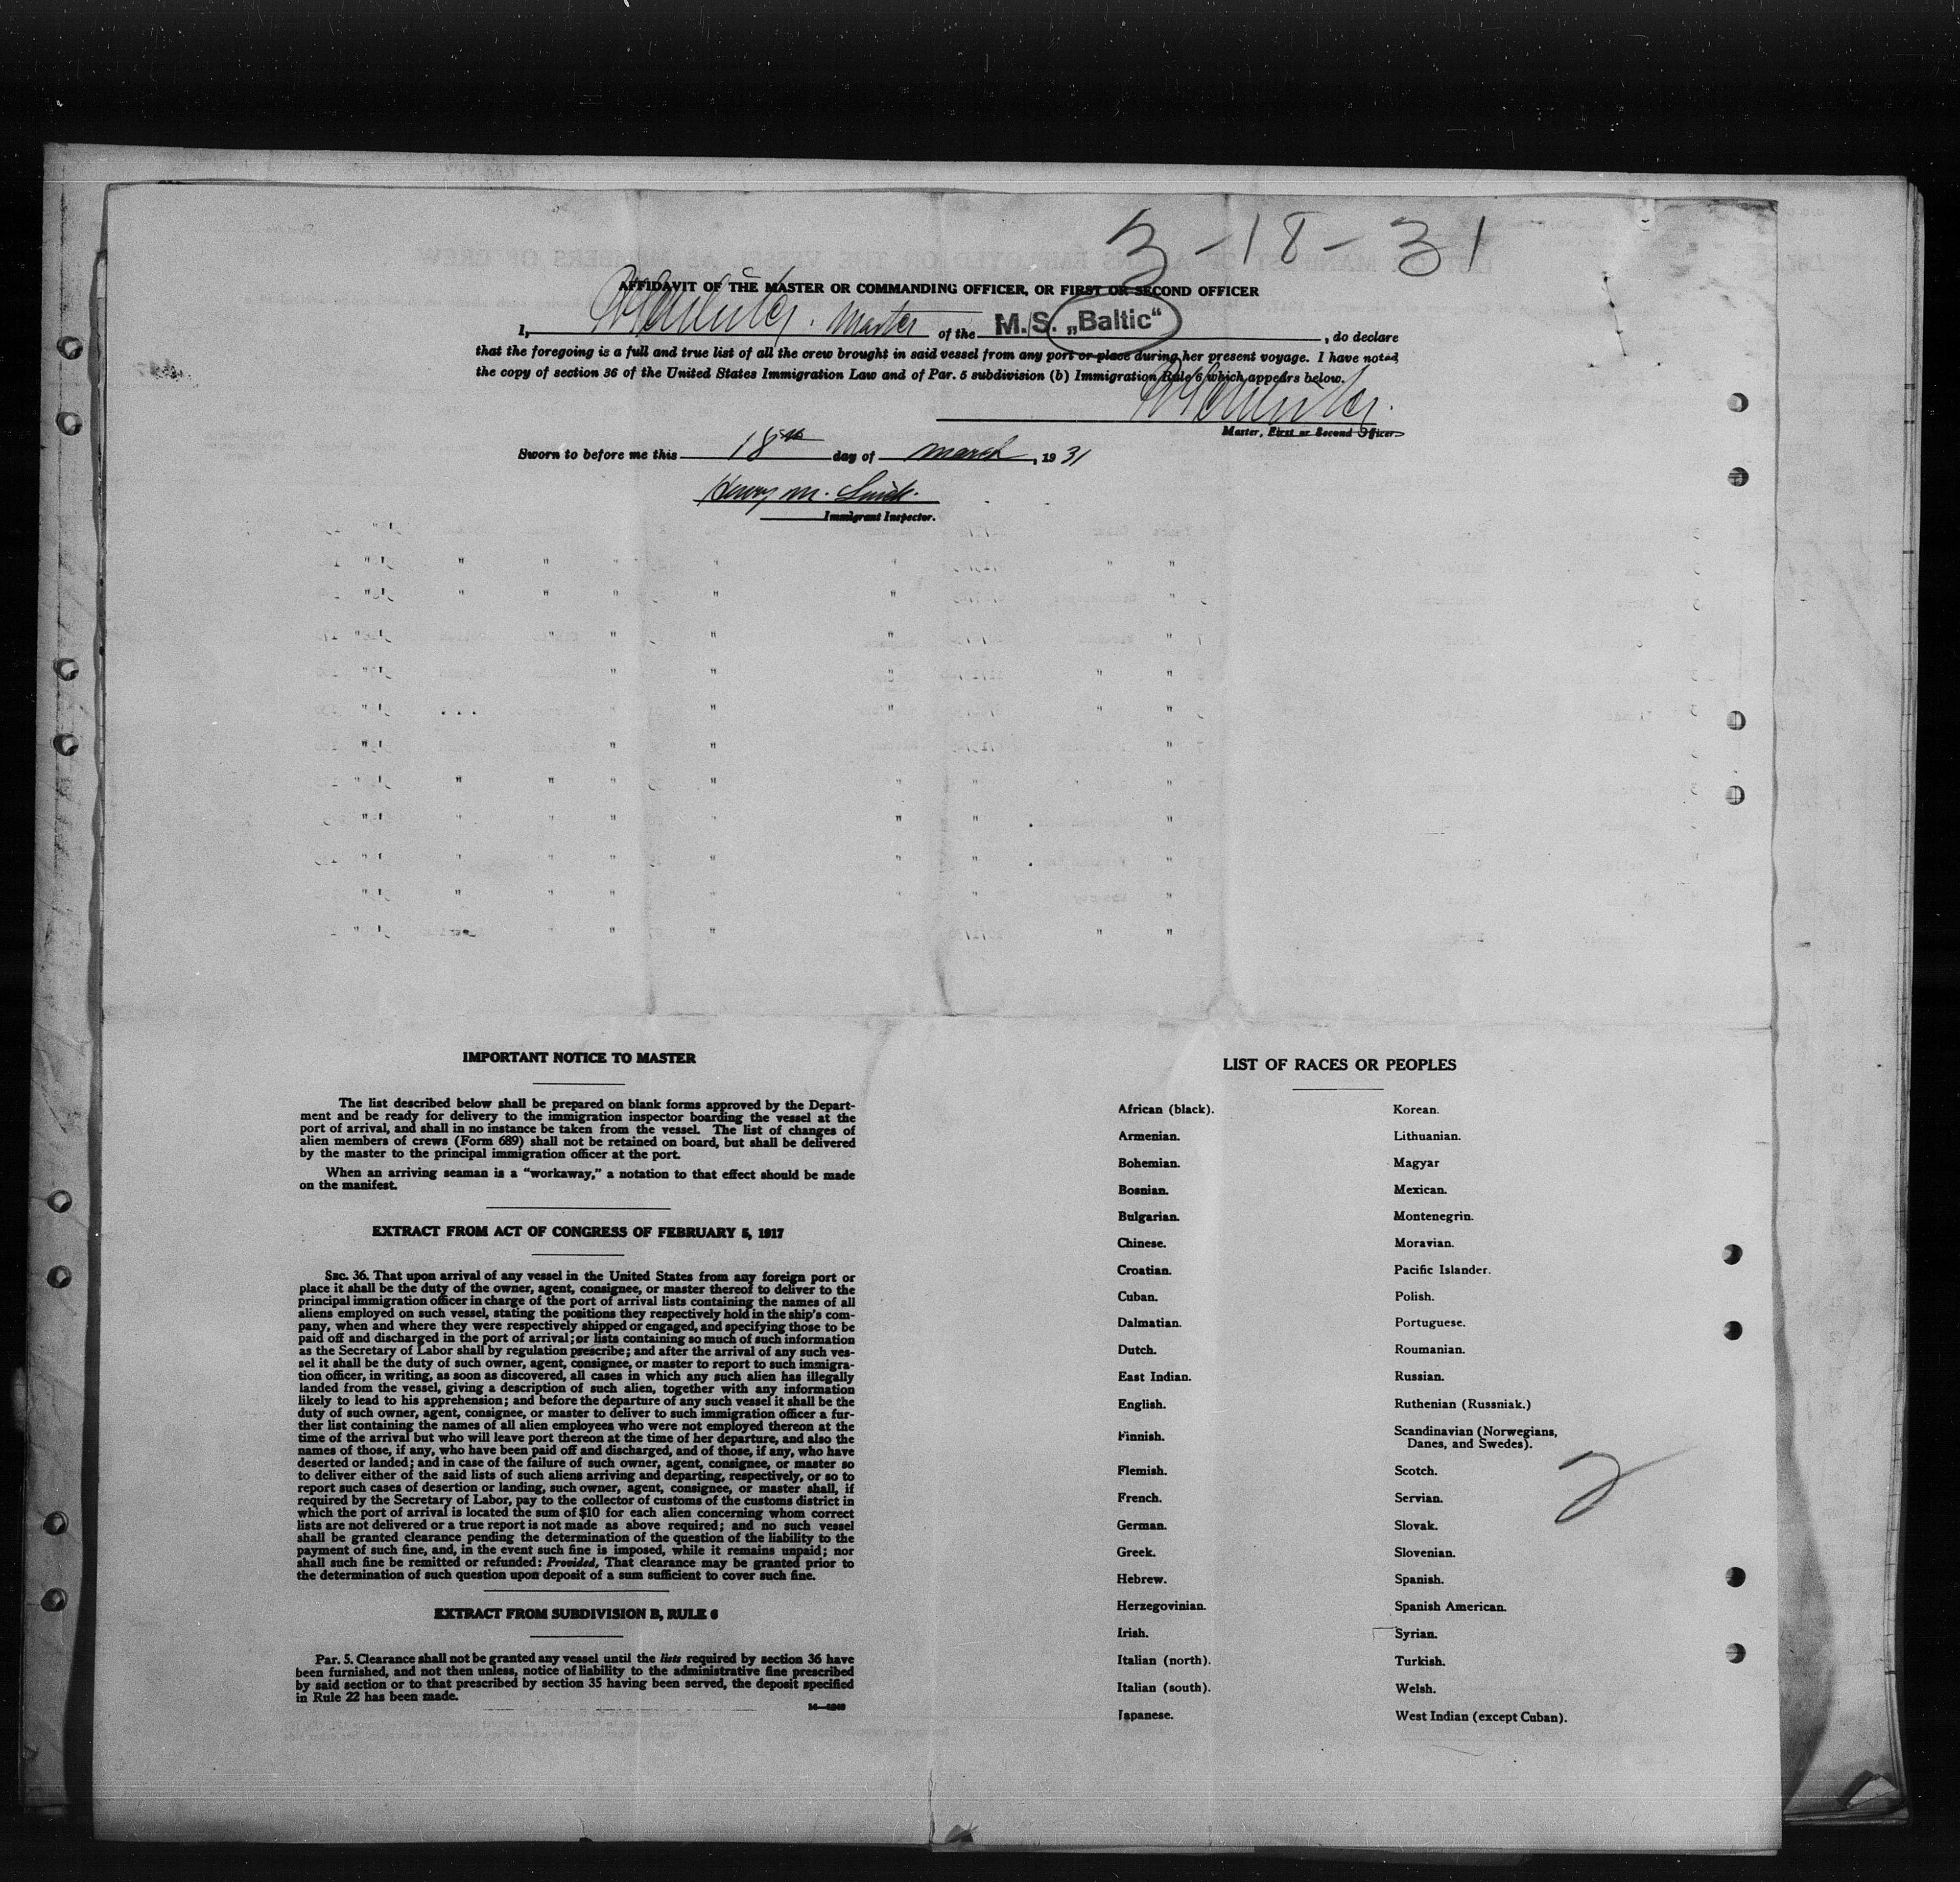 3-18-31
AFFIDAVIT OF THE MASTER OR COMMANDING OFFICER, OR FIRST OR SECOND OFFICER
I, Master of the M.S. „Baltic“, do declare
that the foregoing is a full and true list of all the crew brought in said vessel from any port or place during her present voyage. I have noted
the copy of section 36 of the United States Immigration Law and of Par. 5 subdivision (b) Immigration Rule 6 which appears below.
Master, First or Second Officer
Sworn to before me this 18th day of March, 1931
Henry M.
Immigrant Inspector.
IMPORTANT NOTICE TO MASTER
The list described below shall be prepared on blank forms approved by the Depart-
ment and be ready for delivery to the immigration inspector boarding the vessel at the
port of arrival, and shall in no instance be taken from the vessel. The list of changes of
alien members of crews (Form 689) shall not be retained on board, but shall be delivered
by the master to the principal immigration officer at the port.
When an arriving seaman is a “workaway,” a notation to that effect should be made
on the manifest.
EXTRACT FROM ACT OF CONGRESS OF FEBRUARY 5, 1917
SEC. 36. That upon arrival of any vessel in the United States from any foreign port or
place it shall be the duty of the owner, agent, consignee, or master thereof to deliver to the
principal immigration officer in charge of the port of arrival lists containing the names of all
aliens employed on such vessel, stating the positions they respectively hold in the ship's com-
pany, when and where they were respectively shipped or engaged, and specifying those to be
paid off and discharged in the port of arrival; or lists containing so much of such information
as the Secretary of Labor shall by regulation prescribe; and after the arrival of any such ves-
sel it shall be the duty of such owner, agent, consignee, or master to report to such immigra-
tion officer, in writing, as soon as discovered, all cases in which any such alien has illegally
landed from the vessel, giving a description of such alien, together with any information
likely to lead to his apprehension; and before the departure of any such vessel it shall be the
duty of such owner, agent, consignee, or master to deliver to such immigration officer a fur-
ther list containing the names of all alien employees who were not employed thereon at the
time of the arrival but who will leave port thereon at the time of her departure, and also the
names of those, if any, who have been paid off and discharged, and of those, if any, who have
deserted or landed; and in case of the failure of such owner, agent, consignee, or master so
to deliver either of the said lists of such aliens arriving and departing, respectively, or so to
report such cases of desertion or landing, such owner, agent, consignee, or master shall, if
required by the Secretary of Labor, pay to the collector of customs of the customs district in
which the port of arrival is located the sum of $10 for each alien concerning whom correct
lists are not delivered or a true report is not made as above required; and no such vessel
shall be granted clearance pending the determination of the question of the liability to the
payment of such fine, and, in the event such fine is imposed, while it remains unpaid; nor
shall such fine be remitted or refunded: Provided, That clearance may be granted prior to
the determination of such question upon deposit of a sum sufficient to cover such fine.
EXTRACT FROM SUBDIVISION B, RULE 6
Par. 5. Clearance shall not be granted any vessel until the lists required by section 36 have
been furnished, and not then unless, notice of liability to the administrative fine prescribed
by said section or to that prescribed by section 35 having been served, the deposit specified
in Rule 22 has been made.
LIST OF RACES OR PEOPLES
African (black).
Armenian.
Bohemian.
Bosnian.
Bulgarian.
Chinese.
Croatian.
Cuban.
Dalmatian.
Dutch.
East Indian.
English.
Finnish.
Flemish.
French.
German.
Greek.
Hebrew.
Herzegovinian.
Irish.
Italian (north).
Italian (south).
Japanese.
Korean.
Lithuanian.
Magyar
Mexican.
Montenegrin.
Moravian.
Pacific Islander.
Polish.
Portuguese.
Roumanian.
Russian.
Ruthenian (Russniak.)
Scandinavian (Norwegians,
Danes, and Swedes).
Scotch.
Servian.
Slovak.
Slovenian.
Spanish.
Spanish American.
Syrian.
Turkish.
Welsh.
West Indian (except Cuban).
2